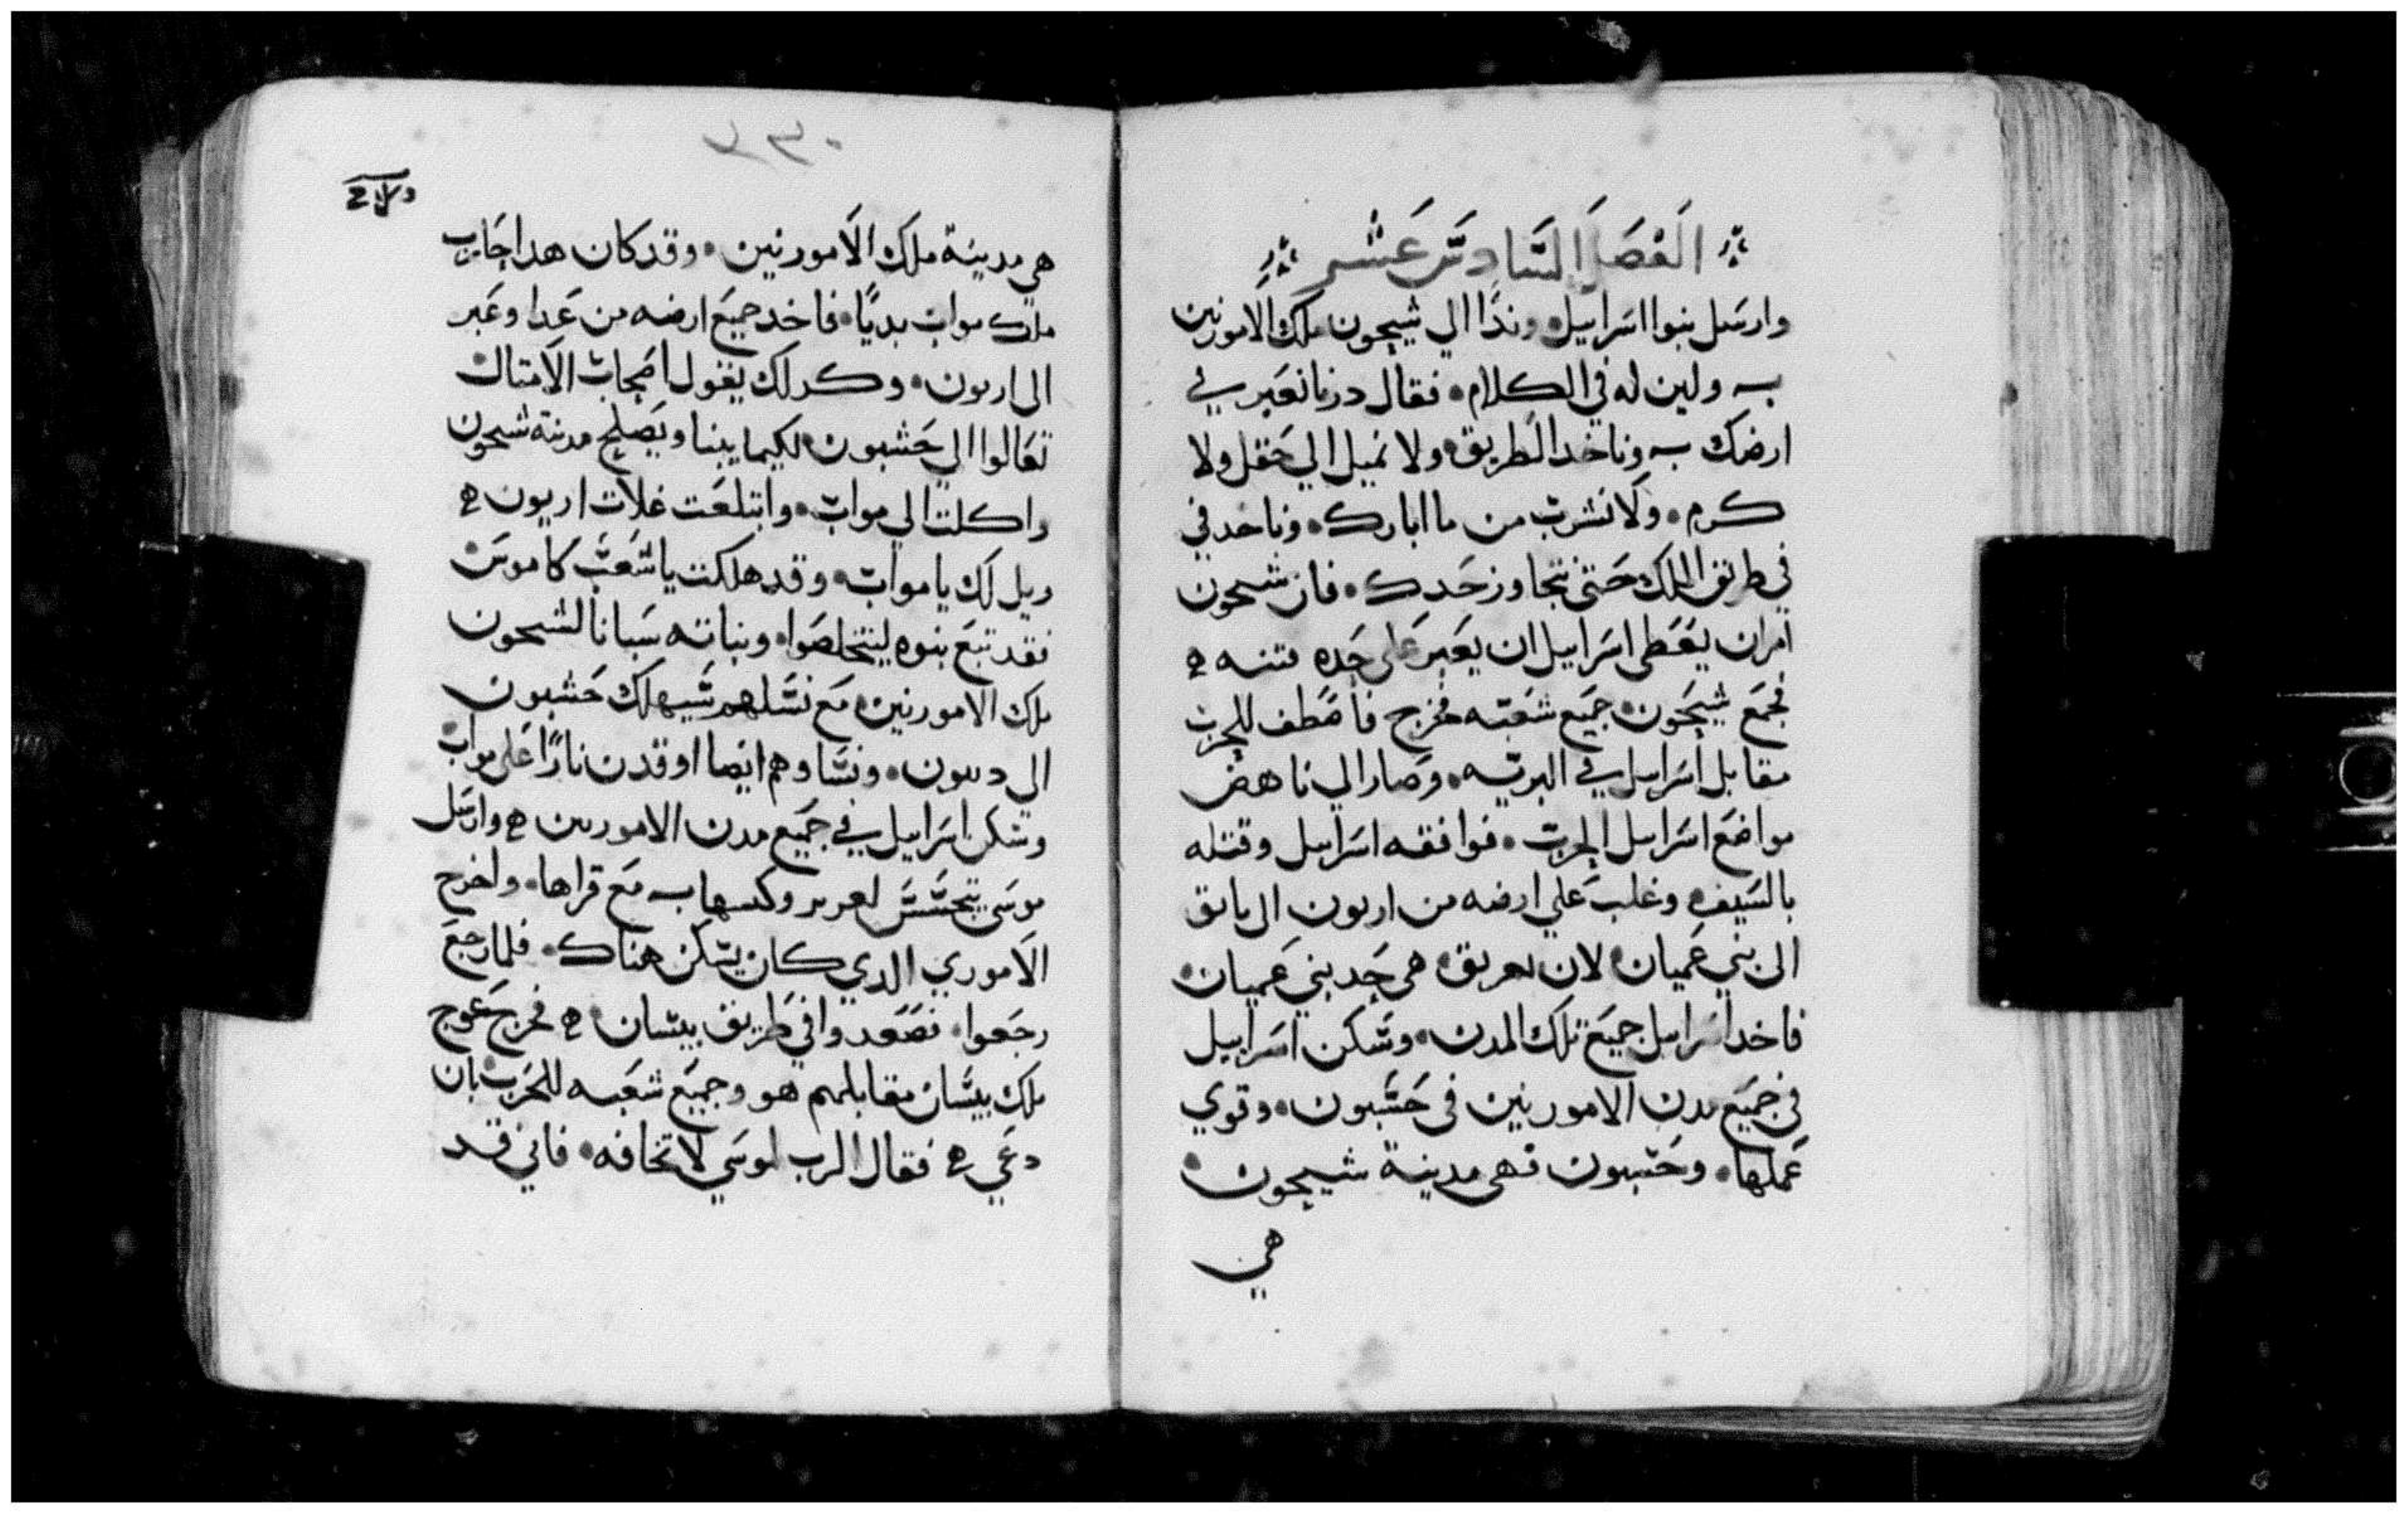 الفصل السادس عشر
وارسل بنوا اسراييل وندا الي شيحون ملك الامورنين
به ولين له في الكلام فقال درنا نعبر في
ارضك به وناخد الطريق ولا نميل الي حقل ولا
كرم ولا نشرب من ما ابارك وناخد في
في طريق الملك حتى نتجاوز حدك فان شيحون
امران يعطى اسراييل ان يعبر على حده
فجمع شيحون جميع شعبه فخرج فاصطف للحرب
مقابل اسراييل في البريه وصار الي ناهض
مواضع اسراييل الحرب فوافقه اسراييل وقتله
بالسيف وغلب علي ارضه من اربون الى ياىق
الى بني عميان لان هي حد بني عميان
فاخد اسراييل جميع تلك المدن وسكن اسراييل
في جميع مدن الامورنين فى حشبون وقوي
عملها وحشبون فهى مدينة شيحون
هي
٢٣٠
هي مدينة ملك الامورنين وقد كان هدا حارب
ملك مواب بديًا فاخد جميع ارضه من عدا وعبر
الى اربون وكدلك يقول اصحاب الامتال
تعالوا الي حشبون لكيما يبنا ويصلح مدينة شيحون
واكلت الي مواب وابتلعت غلات اربون
ويل لك يا مواب وقد هلكت يا شعب كاموس
فقد تبع بنوه ليتخلصوا وبناته سبانا لشيحون
ملك الامورنين مع نسلهم سيهلك حشبون
الي ديبون ونساوهم ايضا اوقدن نارًا على مواب
وسكن اسراييل في جميع مدن الامورنين وارسل
موسى يتجسس وكبسها به مع قراها واخرج
الاموري الدي كان يسكن هناك فلما رجع
رجعوا فصعدوا في طريق بيسان فخرج عوج
ملك بيسان مقابلهم هو وجميع شعبه للحرب بان
دعي فقال الرب لموسي لا تخافه فاني قد